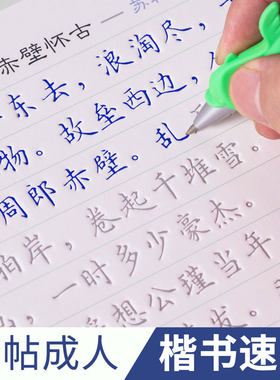 赤壁怀古——苏
东去，浪淘尽，
物。故垒西边，
周郎赤壁。乱
拍岸，卷起千堆雪。
一时多少豪杰。
想公瑾当年
发。
帖成人
楷书速